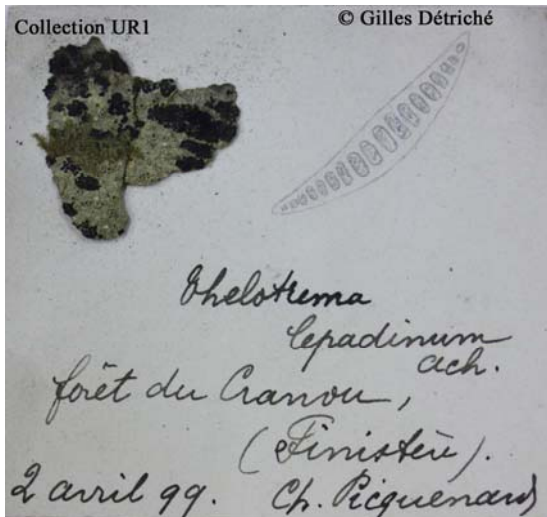 Collection UR1
© Gilles Détriché
Thelotrema
lepadinum
Ach.
forêt du Cranou,
(Finistère).
2 avril 99. Ch. Picquenard